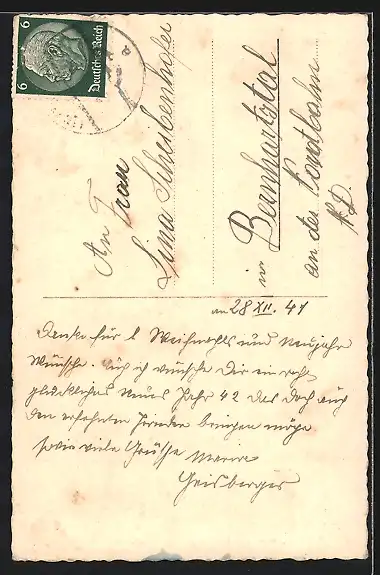 6 Deutsches Reich 6
An Frau
Lina Scheibenhofer
in Bernhartstal
an der Nordbahn
N.D.
am 28 XII. 41
Danke für l Weihnachts und Neujahrs
Wünsche. Auch ich wünsche Dir ein recht
glückliches neues Jahr 42 das doch auch
den ersehnten Frieden bringen möge
sowie viele Grüße Marie
Geisberger